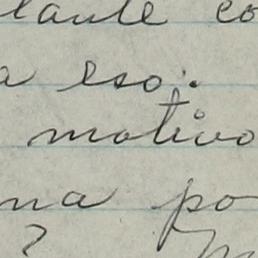 lante co
a eso;.
motivo
na po
?